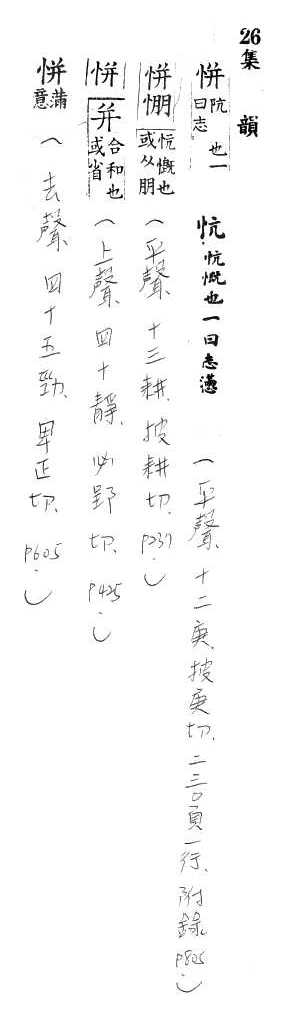 26 集韻
恲 忼也一曰志 忼.忼慨也一曰志懣 (平聲、十二庚、披庚切、二三〇頁一行、附錄 P805.)
恲㥊 忼慨也或从朋 (平聲、十三耕、披耕切、P237.)
恲 并 合和也或省 (上聲、四十靜、必郢切、P425.)
恲 滿意 (去聲、四十五勁、卑正切、P605.)